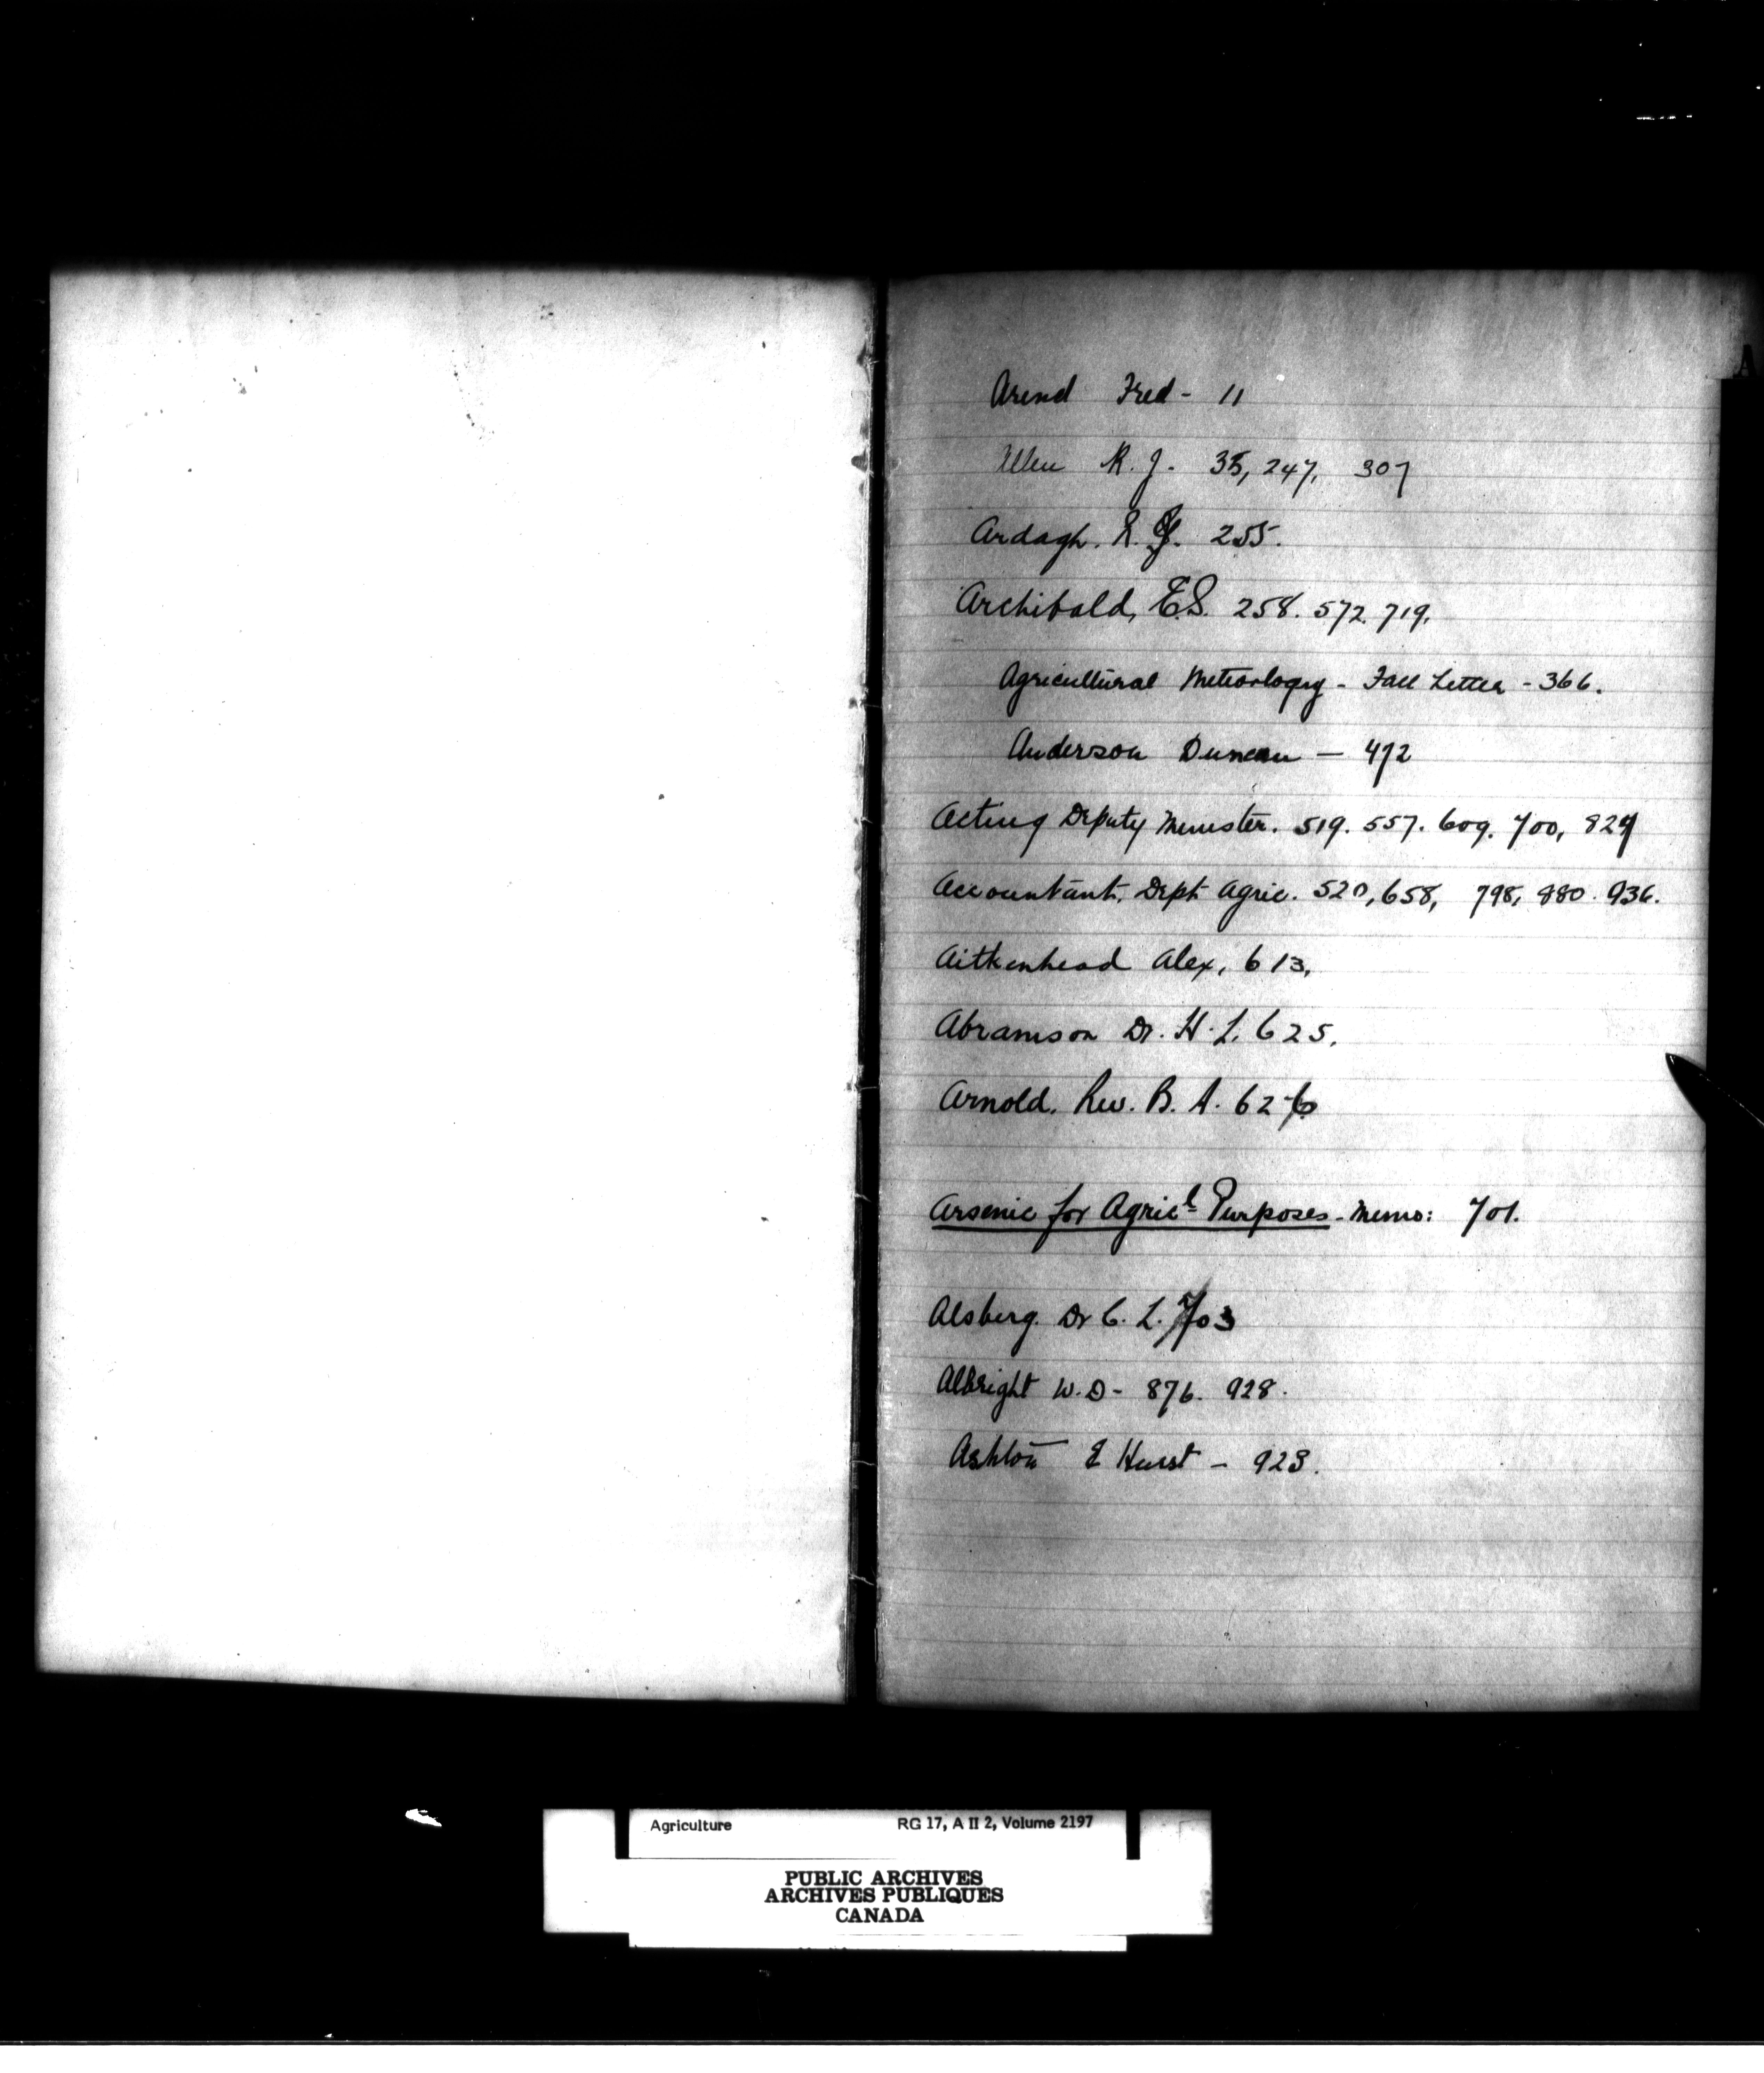 A
Arend Fred - 11
Allen R. J. 35, 247, 307
Ardagh. R. J. 255.
Archibald, E.S. 258. 572. 719.
Agricultural Meteorlogy - Fall Letter - 366.
Anderson Duncan — 472
Acting Deputy Minister. 519. 557. 609. 700, 824
Accountant, Dept Agric. 520, 658, 798, 880. 936.
Aitkenhead Alex, 613,
Abramson Dr. H. L. 625.
Arnold. Rev. B. A. 626
Arsenic for Agricl Purposes - Memo: 701.
Alsberg. Dr C. L. 703
Albright W. D - 876. 928.
Ashton E Hurst - 923.
Agriculture RG 17, A II 2, Volume 2197
PUBLIC ARCHIVES
ARCHIVES PUBLIQUES
CANADA